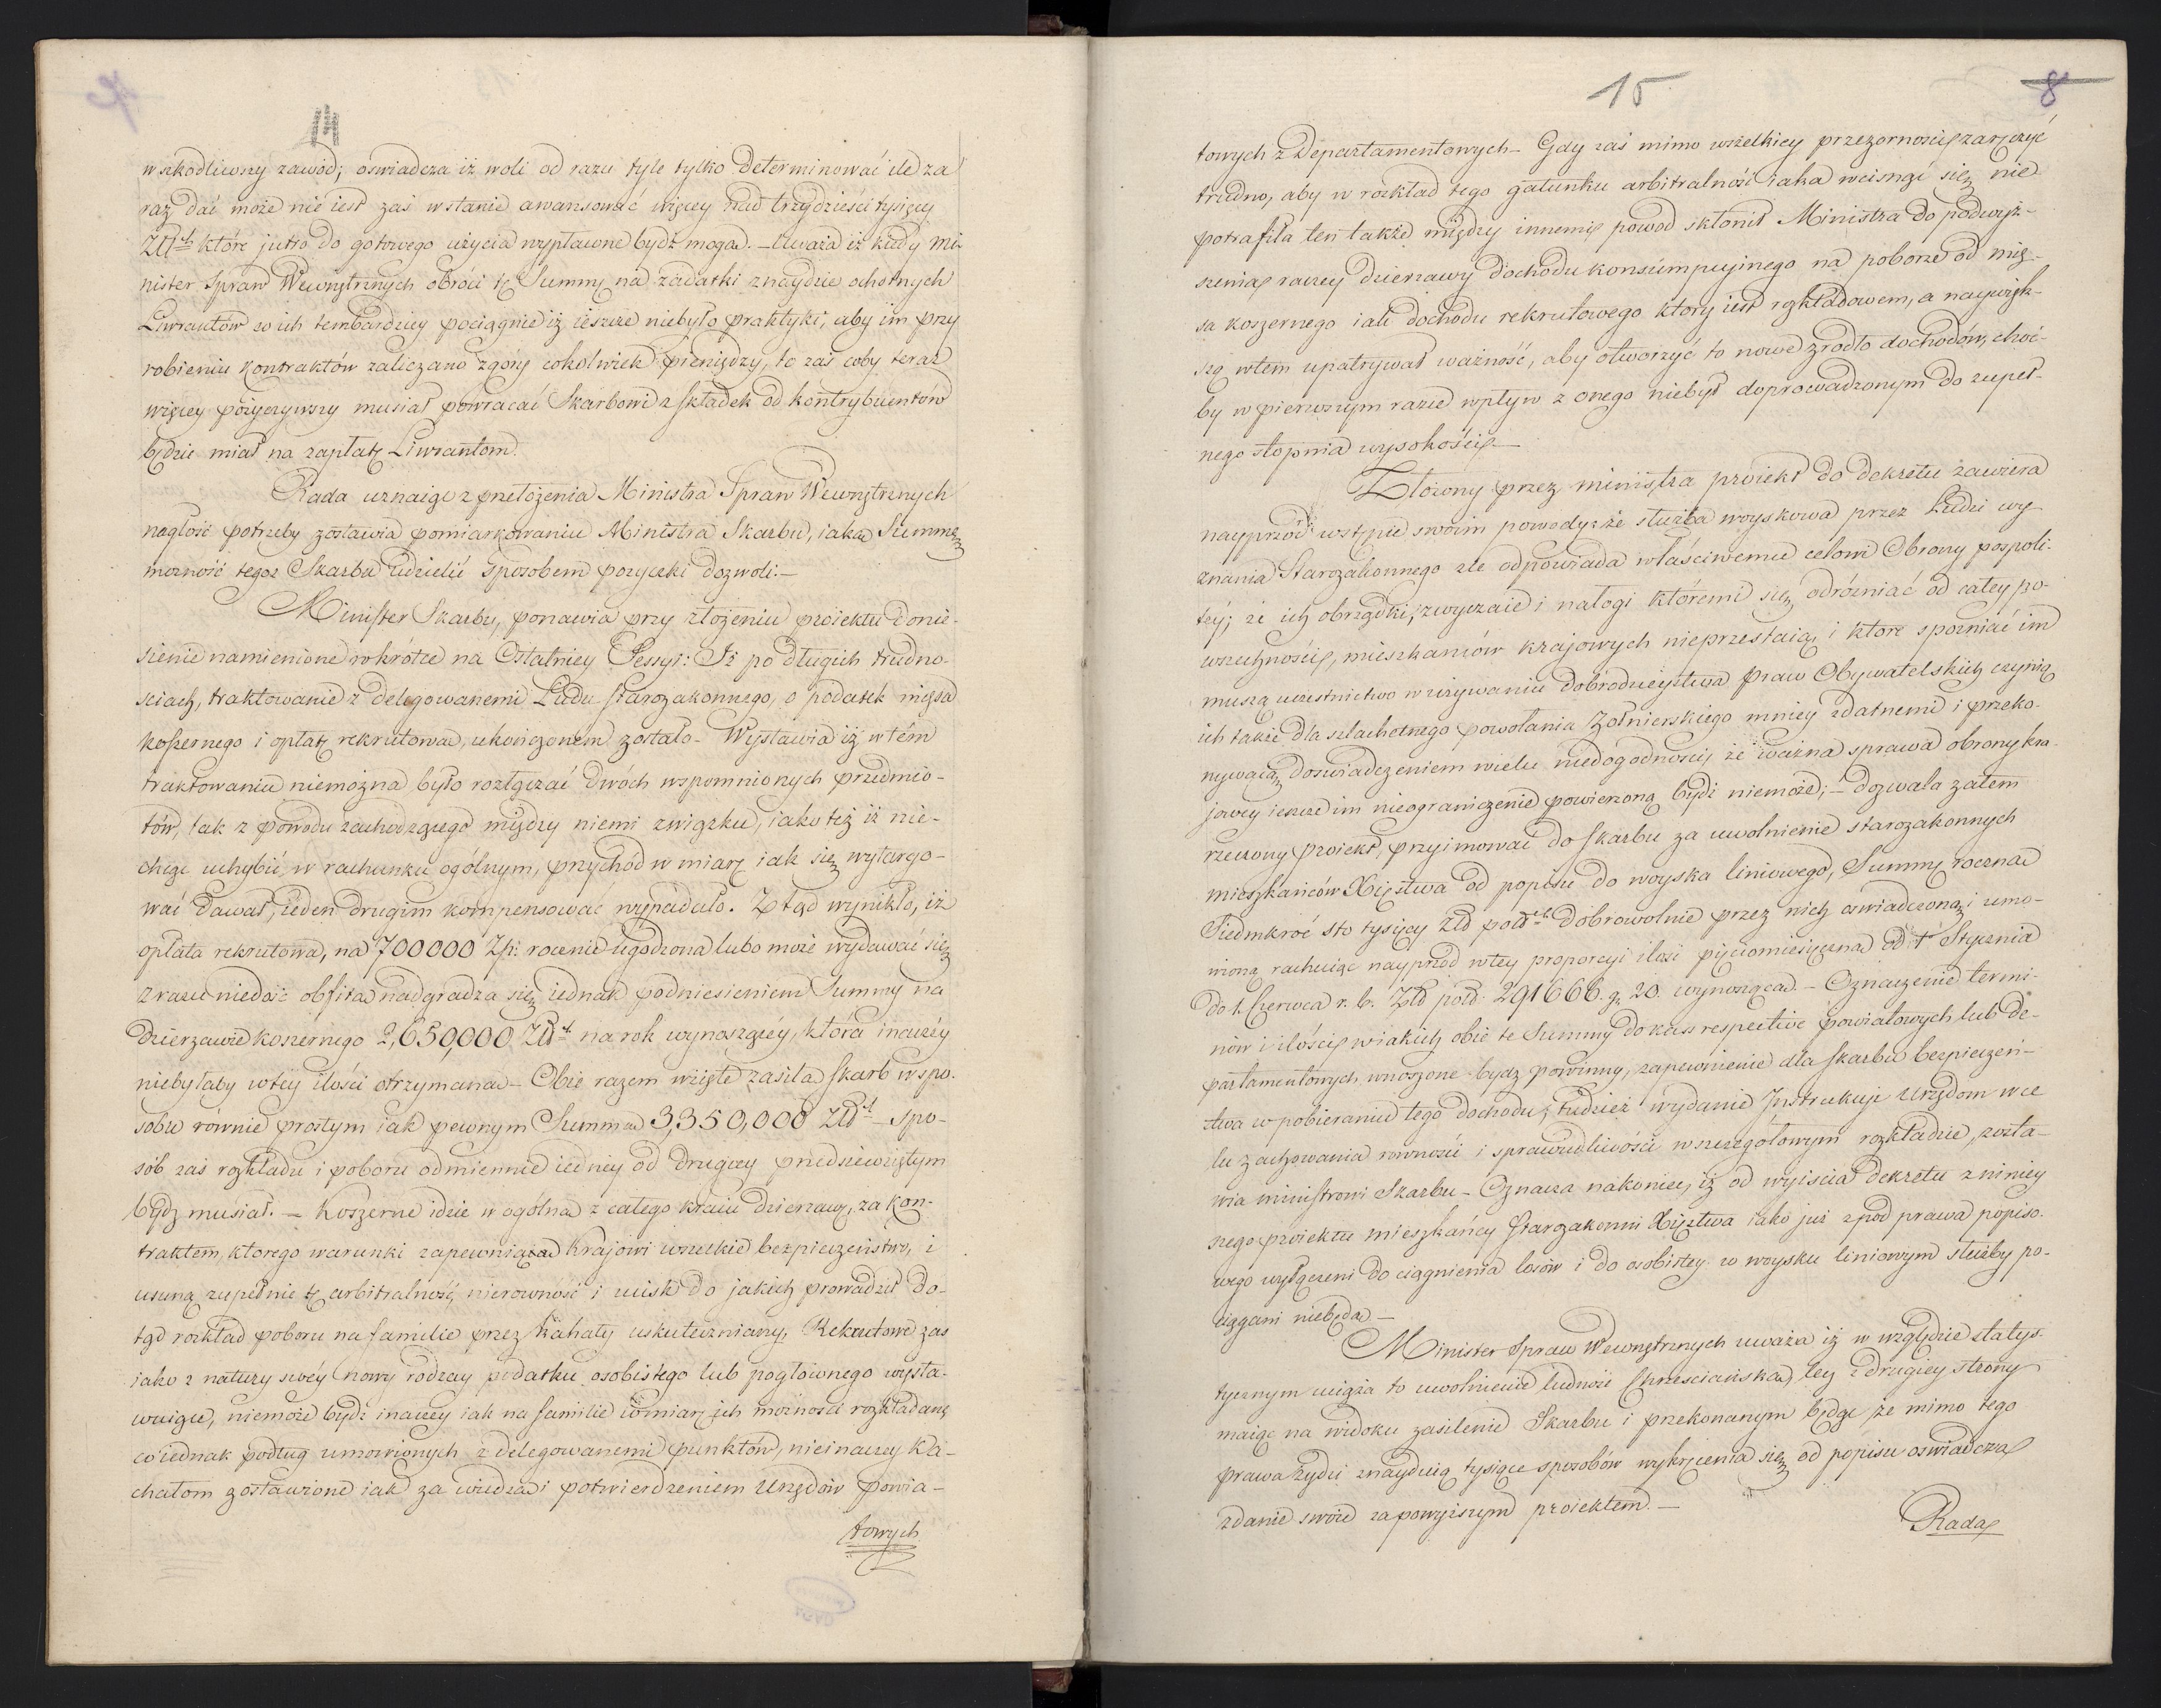 14
w szkodliwszy zawód; oświadcza iż woli od razu tyle tylko determinować ile za
raz dać może nie iest zaś w stanie awansować więcey nad trzydzieści tysięcy
Złt które jutro do gotowego użycia wypławne bydź mogą. — Uważa iż kiedy Mi-
nister Spraw Wewnętrznych obróci tę Summę na zadatki znaydzie ochotnych
Liwrantów co ich tembardziey pociągnie iż ieszcze niebyło praktyki, aby im przy
robieniu kontraktów zaliczano zgóry cokolwiek pieniędzy, to zaś coby teraz
więcey pożyczywszy musiał powracać Skarbowi z składek od kontrybuentów
będzie miał na zapłatę Liwrantom.
Rada uznaiąc z przełożenia Ministra Spraw Wewnętrznych
nagłość potrzeby zostawia pomiarkowaniu Ministra Skarbu, iaką Summę
możność tegoż Skarbu udzielić sposobem pożyczki dozwoli. —
Minister Skarbu, ponawia przy złożeniu proiektu donie-
sienie namienione wkrótce na Ostatniey Sessyi: Iż po długich trudno-
sciach, traktowanie z delegowanemi Ludu starozakonnego, o podatek mięsa
koszernego i opłatę rekrutową, ukończonem zostało — Wystawia iż w tém
traktowaniu niemożna było rozłączać dwóch wspomnionych przedmio-
tów, tak z powodu zachodzącego między niemi związku, iako też iż nie-
chcąc uchybić w rachunku ogólnym, przychód w miarę iak się wytargo-
wać dawał, ieden drugim kompensować wypadało. Ztąd wynikło, iż
opłata rekrutowa, na 700000 Zp: rocznie ugodzona lubo może wydawać się
z razu niedość obfitą nadgradza się iednak podniesieniem Summy na
dzierzawie koszernego 2,650,000 Złt na rok wynoszącéy, która inaczéy
niebyłaby w téy ilości otrzymaną — Obie razem wzięte zasilą skarb w spo-
sobie równie prostym iak pewnym Summą 3,350,000 Złt — Spo-
sób zaś rozkładu i poboru odmiennie iedney od drugiey przedsiewziętym
bydz musiał. — Koszerne idzie w ogólną z całego kraiu dzierzawę, za kon-
traktem, ktorego warunki zapewniaią Krajowi wszelkie bezpieczeństwo, i
usuną zupełnie tę arbitralność, nierowność i ucisk do jakich prowadził do-
tąd rozkład poboru na familie przez Kahały uskuteczniany, Rekrutowe zas
iako z natury swéy nowy rodzay podatku osobistego lub pogłownego wysta-
wuiące, niemoże bydź inaczey iak na familie w miarę ich możności rozkładane,
co iednak podług umowionych z delegowanemi punktów, nieinaczey Ka-
hałom zostawione iak za wiedzą i potwierdzeniem Urzędów powia-
towych
15
8
towych z Departamentowych — Gdy zaś mimo wszelkiey przezorności zaręczyć
trudno, aby w rozkład tego gatunku arbitralność iaka wcisnąć się nie
potrafiła ten także między innemi powod skłonił Ministra do podwyż-
szenia raczey dzierzawy dochodu konsumpcyjnego na poborze od mię-
sa koszernego iak dochodu rekrutowego ktory iest rozkładowem, a naywięk-
szą w tem upatrywał ważność, aby otworzyć to nowe zrodło dochodów, choć-
by w pierwszym razie wpływ z onego niebył doprowadzonym do zupeł-
nego stopnia wysokości —
Złożony przez ministra proiekt do dekretu zawiera
nayprzód w wstępie swoim powody: że służba woyskowa przez Ludzi wy-
znania Starozakonnego złe odpowiada właściwemu celowi Obrony pospoli-
téy; że ich obrządki, zwyczaie i nałogi któremi się odróżniać od całey po-
wszechności, mieszkańców krajowych nieprzestaią i ktore spoźniać im
muszą uczestnictwo w używaniu dobrodzieystwa praw Obywatelskich czynią
ich także dla szlachetnego powołania żołnierskiego mniey zdatnemi i przeko-
nywaią doświadczeniem wielu niedogodności, że ważna sprawa obrony kra-
jowey ieszcze im nieograniczenie powierzoną bydź niemoże; — dozwala zatem
rzeczony proiekt, przyimować do skarbu za uwolnienie starozakonnych
mieszkańców Xięstwa od popisu do woyska liniowego, Summę roczną
Siedmkroć sto tysięcy Złł pol dobrowolnie przez nich oświadczoną i umó-
wioną, rachuiąc nayprzód w tey proporcyi ilość pięciomiesięczną od 1 Stycznia
do 1. Czerwca r. b. Złł pol: 291666. g. 20. wynoszącą. — Oznaczenie termi-
nów i ilości w iakich obie te Summy do kass respective powiatowych lub de-
partamentowych wnoszone bydz powinny, zapewnienie dla skarbu bezpieczeń-
stwa w pobieraniu tego dochodu, tudzież wydanie Instrukcji Urzędom w ce-
lu zachowania rowności i sprawiedliwości w szczegółowym rozkładzie, zosta-
wia ministrowi Skarbu — Oznacza nakoniec, iż od wyiścia dekretu z niniey-
szego proiektu mieszkańcy starozakonni Xięstwa iako już z pod prawa popiso-
wego wyłączeni do ciągnienia losów i do osobistey w woysku liniowym służby po-
ciągani niebędą —
Minister Spraw Wewnętrznych uważa iż w względzie statys-
tycznym uciąża to uwolnienie ludność Chrzesciańską, lecz z drugiey strony
maiąc na widoku zasilenie Skarbu i przekonanym będąc że mimo tego
prawa Żydzi znayduią tysiące sposobów wykręcenia się od popisu oświadcza
zdanie swoie za powyższym proiektem. —
Rada